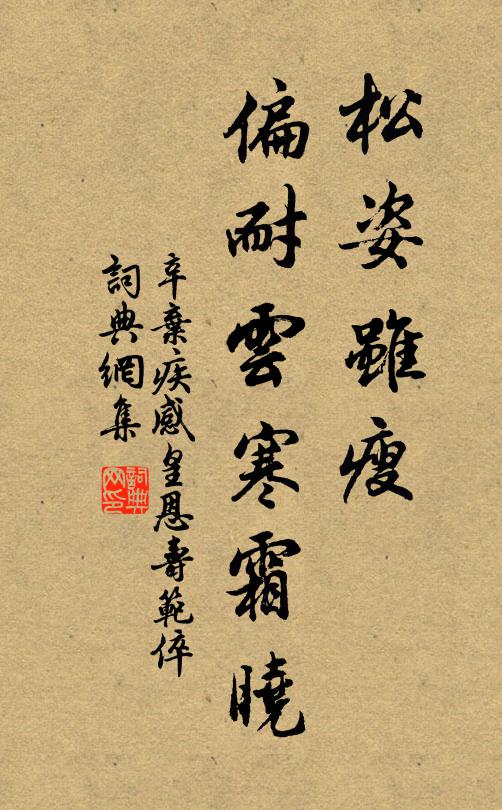 松姿雖瘦
偏耐雲寒霜曉
辛棄疾感皇恩壽範倅
詞典網集
詞典網印